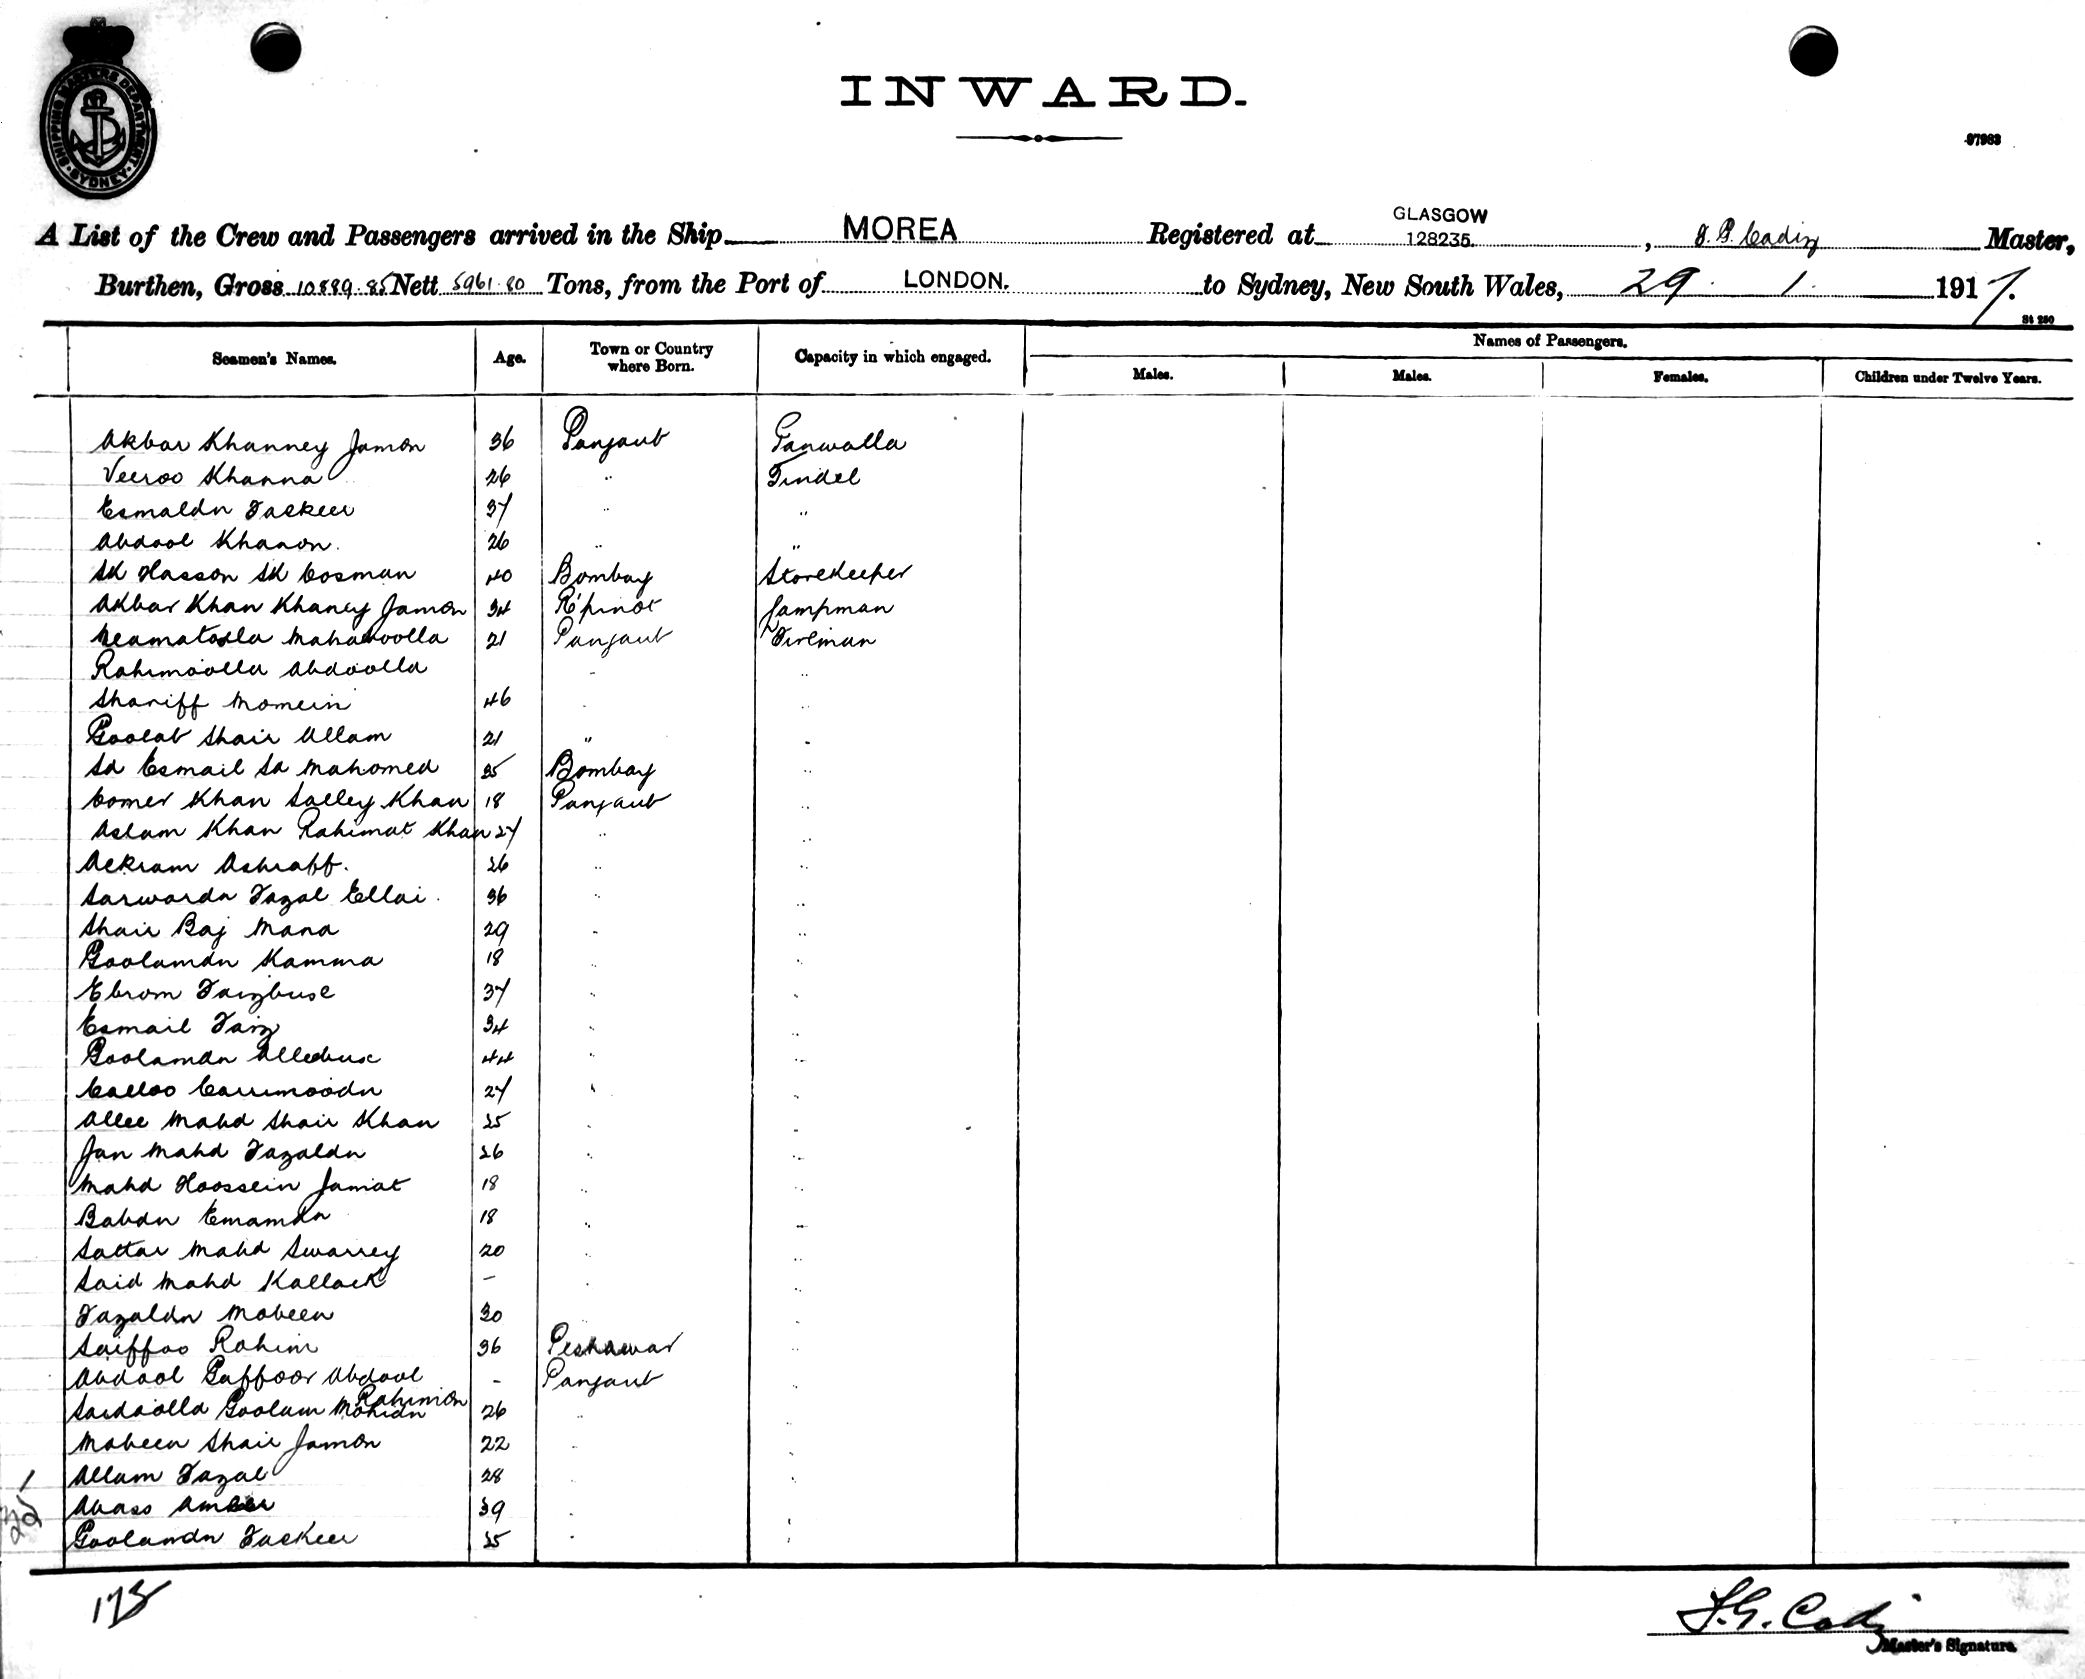 SHIPPING MASTERS DEPARTMENT
SYDNEY
INWARD.
97963
A List of the Crew and Passengers arrived in the Ship MOREA Registered at GLASGOW 128235. , Master,
Burthen, Gross 10889.85 Nett 5961.80 Tons, from the Port of LONDON. to Sydney, New South Wales, 29. 1. 1917.
St 250
Seamen's Names. Age. Town or Country where Born. Capacity in which engaged. Names of Passengers.
Males. Males. Females. Children under Twelve Years.
Akbar Khanney Jamon 36 Panjaub Panwalla
Veeroo Khanna 26 " Tindel
Esmaldn Faskeer 37 " "
Abdool Khanon. 26 " "
Sk Hasson Sk Cosman 40 Bombay Storekeeper
Akbar Khan Khaney Jamon 34 R'pinot Lampman
Neamatoolla Mahaboolla 21 Panjaub Fireman
Rahimoolla Abdoolla " "
Shariff Momein 46 " "
Goolab Shair Allam 21 " "
Sd Esmail Sd Mahomed 35 Bombay "
Comer Khan Salley Khan 18 Panjaub "
Aslam Khan Rahimat Khan 27 " "
Ackram Ashraff. 26 " "
Sarwardn Fazal Ellai. 36 " "
Shair Baj Mana 29 " "
Goolamdn Kamma 18 " "
Ebrom Faizbuse 37 " "
Esmail Faiz 34 " "
Goolamdn Allebux 44 " "
Calloo Carrimoodn 27 " "
Allee Mahd Shair Khan 25 " "
Jan Mahd Fazaldn 26 " "
Mahd Hoossein Jamat 18 " "
Babdn Emamdn 18 " "
Sattar Mahd Swarrey 20 " "
Said Mahd Kallack - " "
Fazaldn Mobeen 30 " "
Saiffoo Rahim 36 Peshawar "
Abdool Gaffoor Abdool Rahimon - Panjaub "
Saidoolla Goolam Mohidn 26 " "
Mobeen Shair Jamon 22 " "
Allam Fazal 28 " "
Abass 39 " "
Goolamdn Faskeer 25 " "
173
Master's Signature.